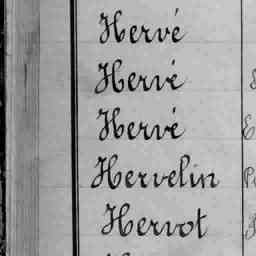 Hervé
Hervé
Hervé
Hervelin
Hervot